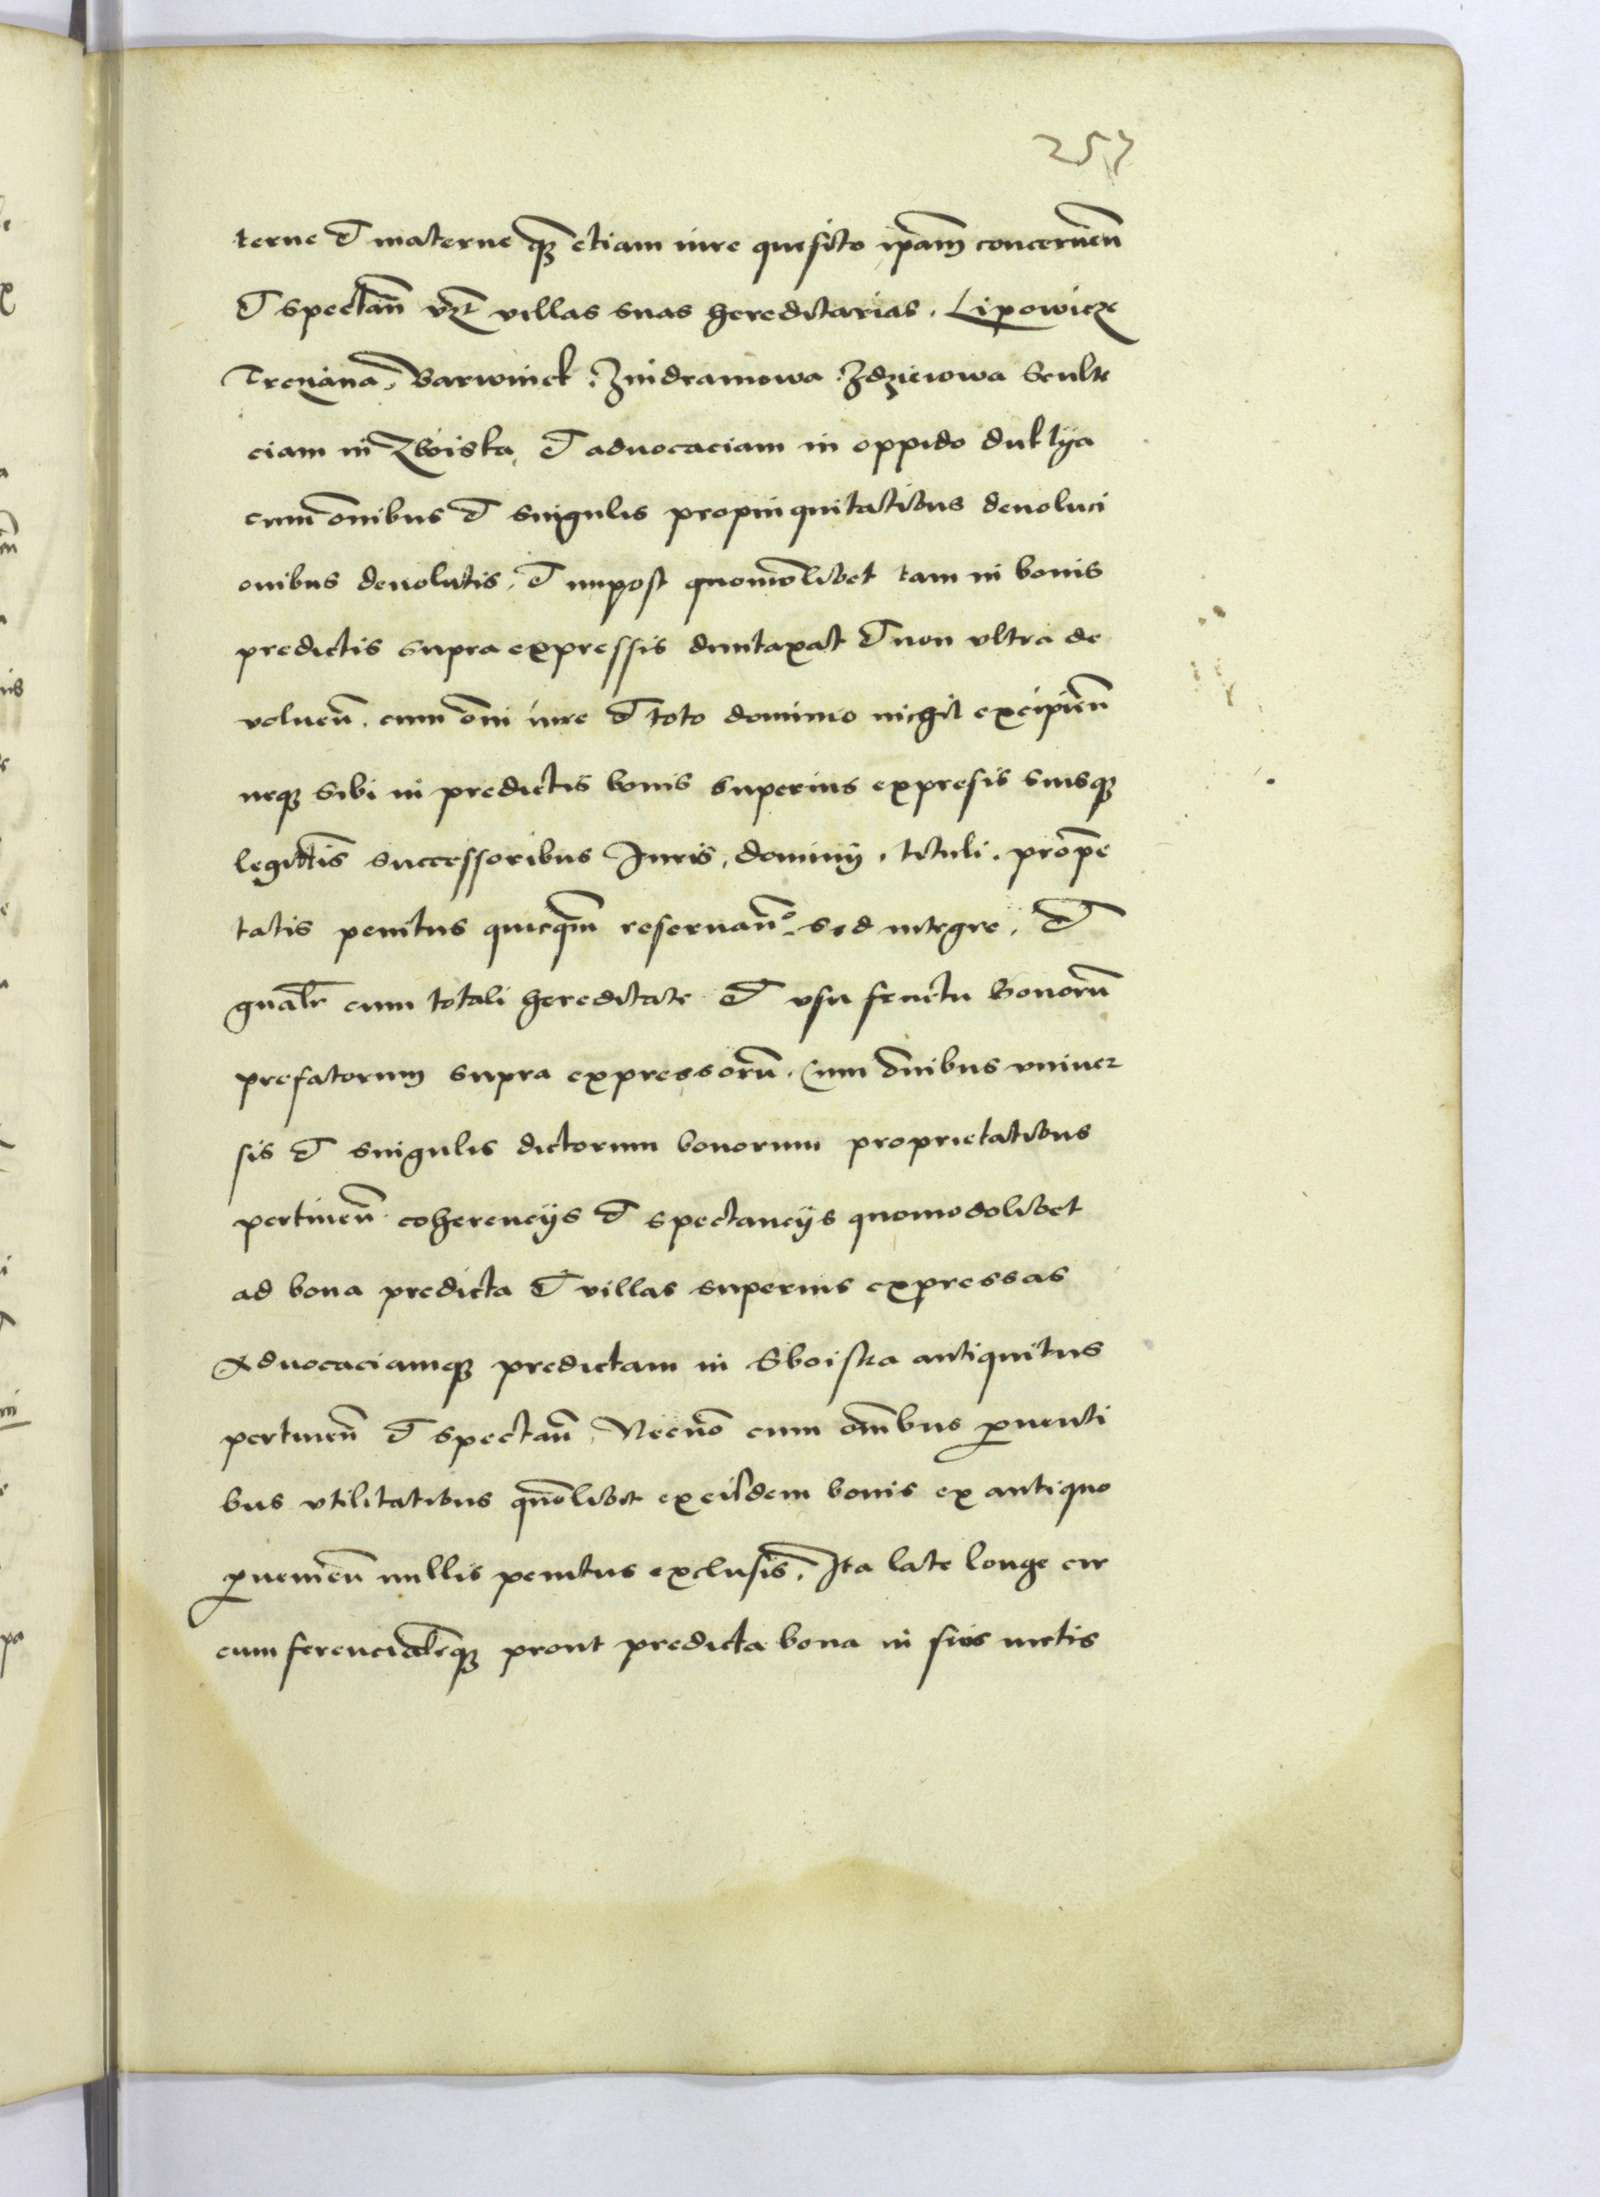 257
terne et materne q3 etiam iure quesito ip̄am concernen̄
et spectan̄ vz villas suas hereditarias. Lipowicze
Trczana, Barwinek, Zindramowa Zdzieiowa Sculte
ciam in Zboiska, et aduocaciam in oppido duklya
cum om̄ibus et singulis propinquitatibus deuoluci
onibus deuolutis, et impost quomōlibet tam in bonis
predictis supra expressis duntaxat et non vltra de
voluen̄. cum om̄i iure et toto dominio nichil excipien̄
neq3 sibi in predictis bonis superius expresis suisq3
legittis̄ successoribus Juris, dominij, tituli, prop̄e
tatis penitus quicq̄m reseruan̄. sed integre, et
gn̄alr cum totali hereditate et vsu fructu bonorū
prefatorum supra expressorū. Cum om̄ibus vniuer
sis et singulis dictorum bonorum proprietatibus
pertinen̄ coherencijs et spectancijs quomodolibet
ad bona predicta et villas superius expressas
Aduocaciamq3 predictam in Sboiska antiquitus
pertinen̄ et spectan̄, Necnō cum om̄ibus puenti
bus vtilitatibus quōlibet ex eisdem bonis ex antiquo
puenien̄ nullis penitus exclusis. Ita late longe cir
cum ferencialr̄q3 prout predicta bona in suis metis